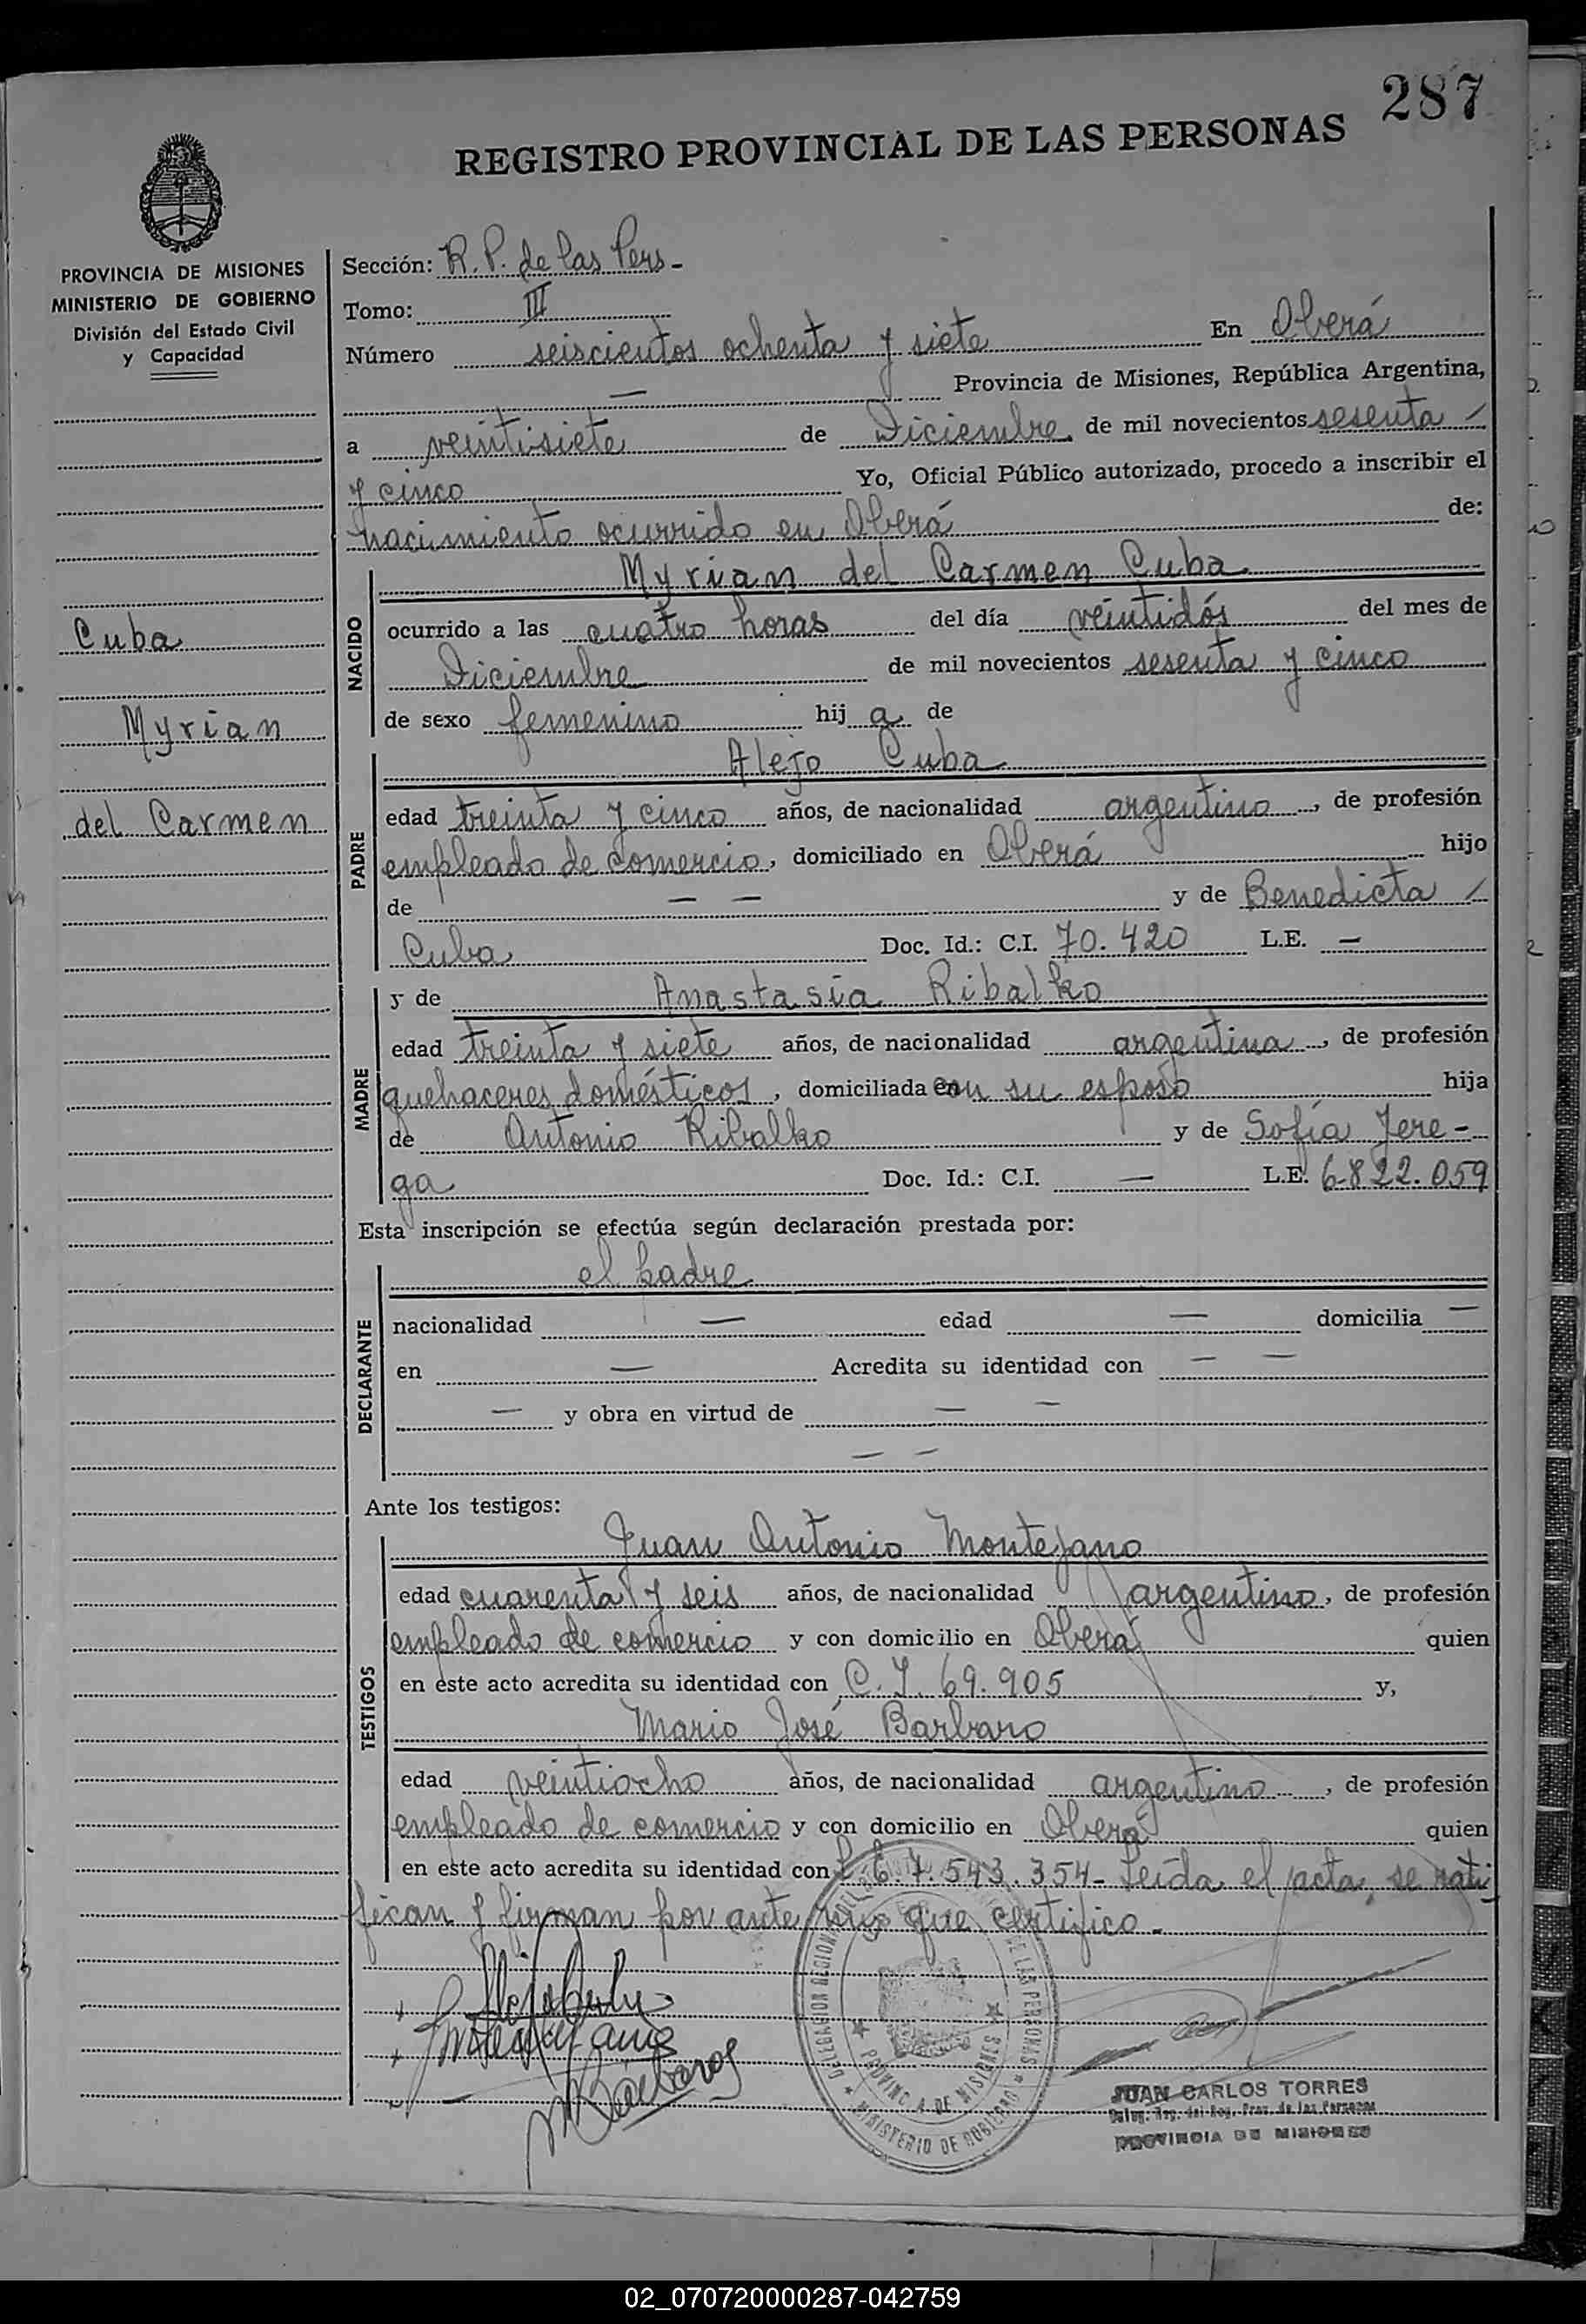 287
REGISTRO PROVINCIAL DE LAS PERSONAS
PROVINCIA DE MISIONES
MINISTERIO DE GOBIERNO
División del Estado Civil
y Capacidad
Cuba
Myrian
del Carmen
Sección: R. P. de las Pers-
Tomo: III
Número seiscientos ochenta y siete En Oberá
— Provincia de Misiones, República Argentina,
a veintisiete de Diciembre de mil novecientos sesenta
y cinco Yo, Oficial Público autorizado, procedo a inscribir el
nacimiento ocurrido en Oberá de:
NACIDO
Myrian del Carmen Cuba
ocurrido a las cuatro horas del día veintidós del mes de
Diciembre de mil novecientos sesenta y cinco
de sexo femenino hij a de
PADRE
Alejo Cuba
edad treinta y cinco años, de nacionalidad argentino, de profesión
empleado de comercio, domiciliado en Oberá hijo
de — — y de Benedicta
Cuba Doc. Id.: C.I. 70.420 L.E. —
MADRE
y de Anastasia Ribalko
edad treinta y siete años, de nacionalidad argentina, de profesión
quehaceres domésticos, domiciliada con su esposo hija
de Antonio Ribalko y de Sofía Jere-
ga Doc. Id.: C.I. — L.E. 6.822.059
Esta inscripción se efectúa según declaración prestada por:
DECLARANTE
el padre
nacionalidad — edad — domicilia —
en — Acredita su identidad con — —
— y obra en virtud de — —
— —
Ante los testigos:
TESTIGOS
Juan Antonio Montejano
edad cuarenta y seis años, de nacionalidad argentino, de profesión
empleado de comercio y con domicilio en Oberá quien
en este acto acredita su identidad con C. I. 69.905 y,
Mario José Barbaro
edad veintiocho años, de nacionalidad argentino, de profesión
empleado de comercio y con domicilio en Oberá quien
en este acto acredita su identidad con L. E. 7.543.354- Leída el acta, se rati
fican y firman por ante mi que certifico.-
MINISTERIO DE GOBIERNO
PROVINCIA DE MISIONES
JUAN CARLOS TORRES
Deleg. Reg. del Reg. Prov. de las Personas
PROVINCIA DE MISIONES
02_070720000287-042759